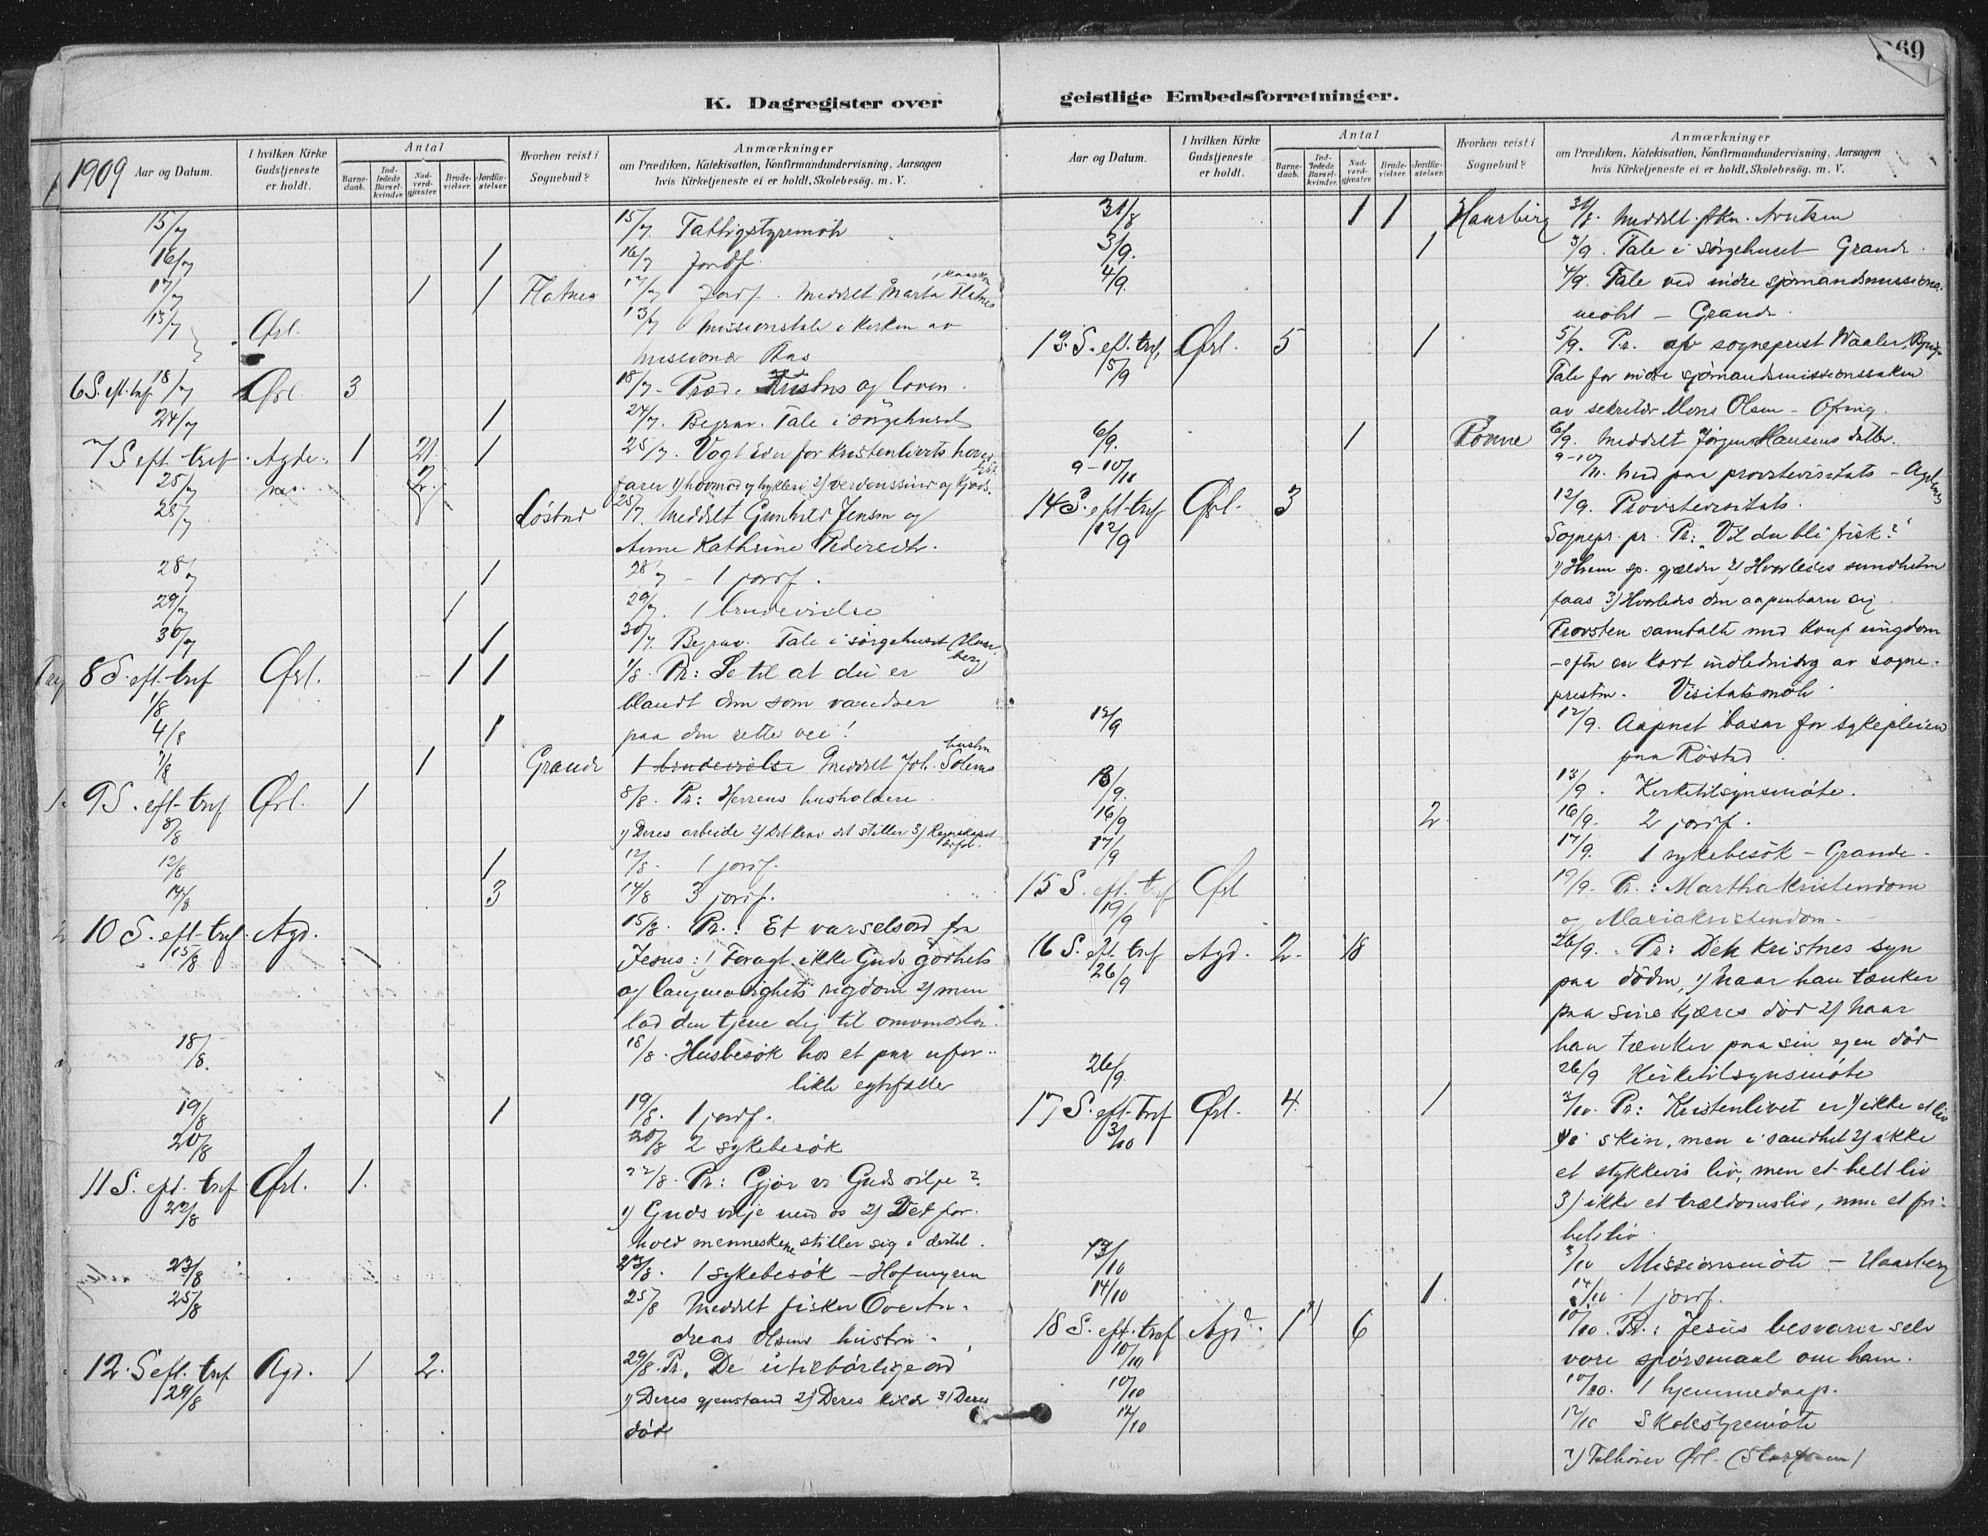 K. Dagregister over geistlige Embedsforretninger.
369
1909 Aar og Datum.
I hvilken Kirke Gudstjeneste er holdt.
Antal
Barnedaab.
Indledede Barselkvinder.
Nadverdgjæster.
Brudevielser.
Jordfæstelser.
Hvorhen reist i Sognebud?
Anmærkninger
om Prædiken, Katekisation, Konfirmandundervisning, Aarsagen
hvis Kirketjeneste ei er holdt, Skolebesög. m. V.
15/7 15/7 Fattigstyremöte
16/7 1 16/7 Jordf.
17/7 1 1 Flatnes 17/7 Jordf. Meddelt Marta Flatnes
13/7 Ørl. 13/7 Missionstale i kirken av
missionær Aas
6 S. eft. tref 18/7 Ørl. 3 18/7. Præd. Kristus og loven.
24/7 1 24/7. Begrav. Tale i sörgehuset
7 S. eft. tref Agdenes 1 21 1 25/7. Vogt eder for kristenlivets hoved
25/7 2 farer 1) hovmod og hykleri 2) verdenssind og
25/7 Löstad 25/7. Meddelt Gunhild Jensen og
Anne Kathrine Pedersdtr.
28/7 1 28/7 - 1 jordf.
29/7 1 29/7. 1 brudevielse
30/7 1 30/7. Begrav. Tale i sörgehuset (Haarberg)
8 S. eft. tref Ørl. 1 1 1/8. Pr: Se til at du er
1/8 blandt dem som vandrer
4/8 1 paa den rette vei!
7/8 1 Grande 1 brudevielse Meddelt Joh. Solems hustru
9 S. eft. tref Ørl. 1 8/8. Pr: Herrens husholdere.
8/8 1) Deres arbeide 2) Det krav det stiller 3) Regnskapet
12/8 1 12/8. 1 jordf.
14/8 3 14/8 3 jordf.
10 S. eft. tref. Agd. 15/8. Pr.: Et varselsord fra
15/8 1 Jesus: 1) Foragt ikke Guds godhets
og langmodighets rigdom 2) men
lad den tjene dig til omvendelse.
18/8. 18/8. Husbesök hos et par ufor-
likte egtefæller
19/8 1 19/8. 1 jordf.
20/8 20/8 2 sykebesök
11 S. eft. tref Ørl. 1. 22/8. Pr: Gjör vi Guds vilje?
22/8 1) Guds vilje med os 2) Det for-
hold menneskene stiller sig i dertil.
23/8 23/8. 1 sykebesök - Hofmyren
25/8 25/8 Meddelt fisker Ove An-
dreas Olsens hustru.
12. S. eft. tref Agd. 1 2. 29/8. Pr. De utilbörlige ord
29/8 1) Deres gjenstand 2) Deres kilde 3) Deres
död
Aar og Datum.
I hvilken Kirke Gudstjeneste er holdt.
Antal
Barnedaab.
Indledede Barselkvinder.
Nadverdgjæster.
Brudevielser.
Jordfæstelser.
Hvorhen reist i Sognebud?
Anmærkninger
om Prædiken, Katekisation, Konfirmandundervisning, Aarsagen
hvis Kirketjeneste ei er holdt, Skolebesög. m. V.
31/8 1 1 Haarberg 31/8. Meddelt frkn. Arntsen
3/9. 1 3/9. Tale i sörgehuset Grande.
4/9. 4/9. Tale ved indre sjömandsmissions-
möte - Grande.
13. S. eft. tref. Ørl. 5 1 5/9. Pr. av sogneprest Waaler,
15/9 Tale for indre sjömandsmissionssaken
av sekretær Mons Olsen - Opring.
6/9. 1 Rönne 6/9. Meddelt Jörgen Hansens datter.
9-10/11 9-10/11. Med paa provstevisitats - Agdenes
14 S. eft. tref Ørl. 3 12/9. Provstevisitats.
12/9 Sognepr. pr. Pr: "Vil du bli frisk?"
1) Hvem sp. gjælder 2) Hvorledes sundheten
faas 3) Hvorledes den aapenbarer sig.
Provsten samtalte med konf. ungdom
- efter en kort indledning av sogne-
presten. Visitatsmöte.
12/9 12/9. Aapnet basar for sykepleien
paa Röstad.
13/9. 13/9. Kirketilsynsmöte.
16/9 2 16/9. 2 jordf.
17/9 17/9. 1 sykebesök - Grande.
15 S. eft. tref Ørl 19/9. Pr.: Marthakristendom
19/9 og Mariakristendom.
16 S. eft. tref Agd. 2. 18 26/9. Pr: Den kristnes syn
26/9 paa döden, 1) naar han tænker
paa sine kjæres död 2) naar
han tænker paa sin egen död
26/9. 26/9 Kirketilsynsmöte
17 S. eft. tref Ørl. 4. 1 3/10. Pr: Kristenlivet er 1) ikke et liv
3/10 i skin, men i sandhet 2) ikke
et stykkevis liv, men et helt liv
3) ikke et trældomsliv, men et fri-
hetsliv.
13/10 3/10 Missionsmöte - Haarberg
14/10 1. 14/10. 1 jordf.
18 S. eft. tref Agd. 1 6 10/10. Pr.: Jesus besvarer selv
10/10 vore spörsmaal om ham.
10/10 10/10. 1 hjemmedaap.
12/10 12/10 Skolestyremöte
Tilhörer Ørl.